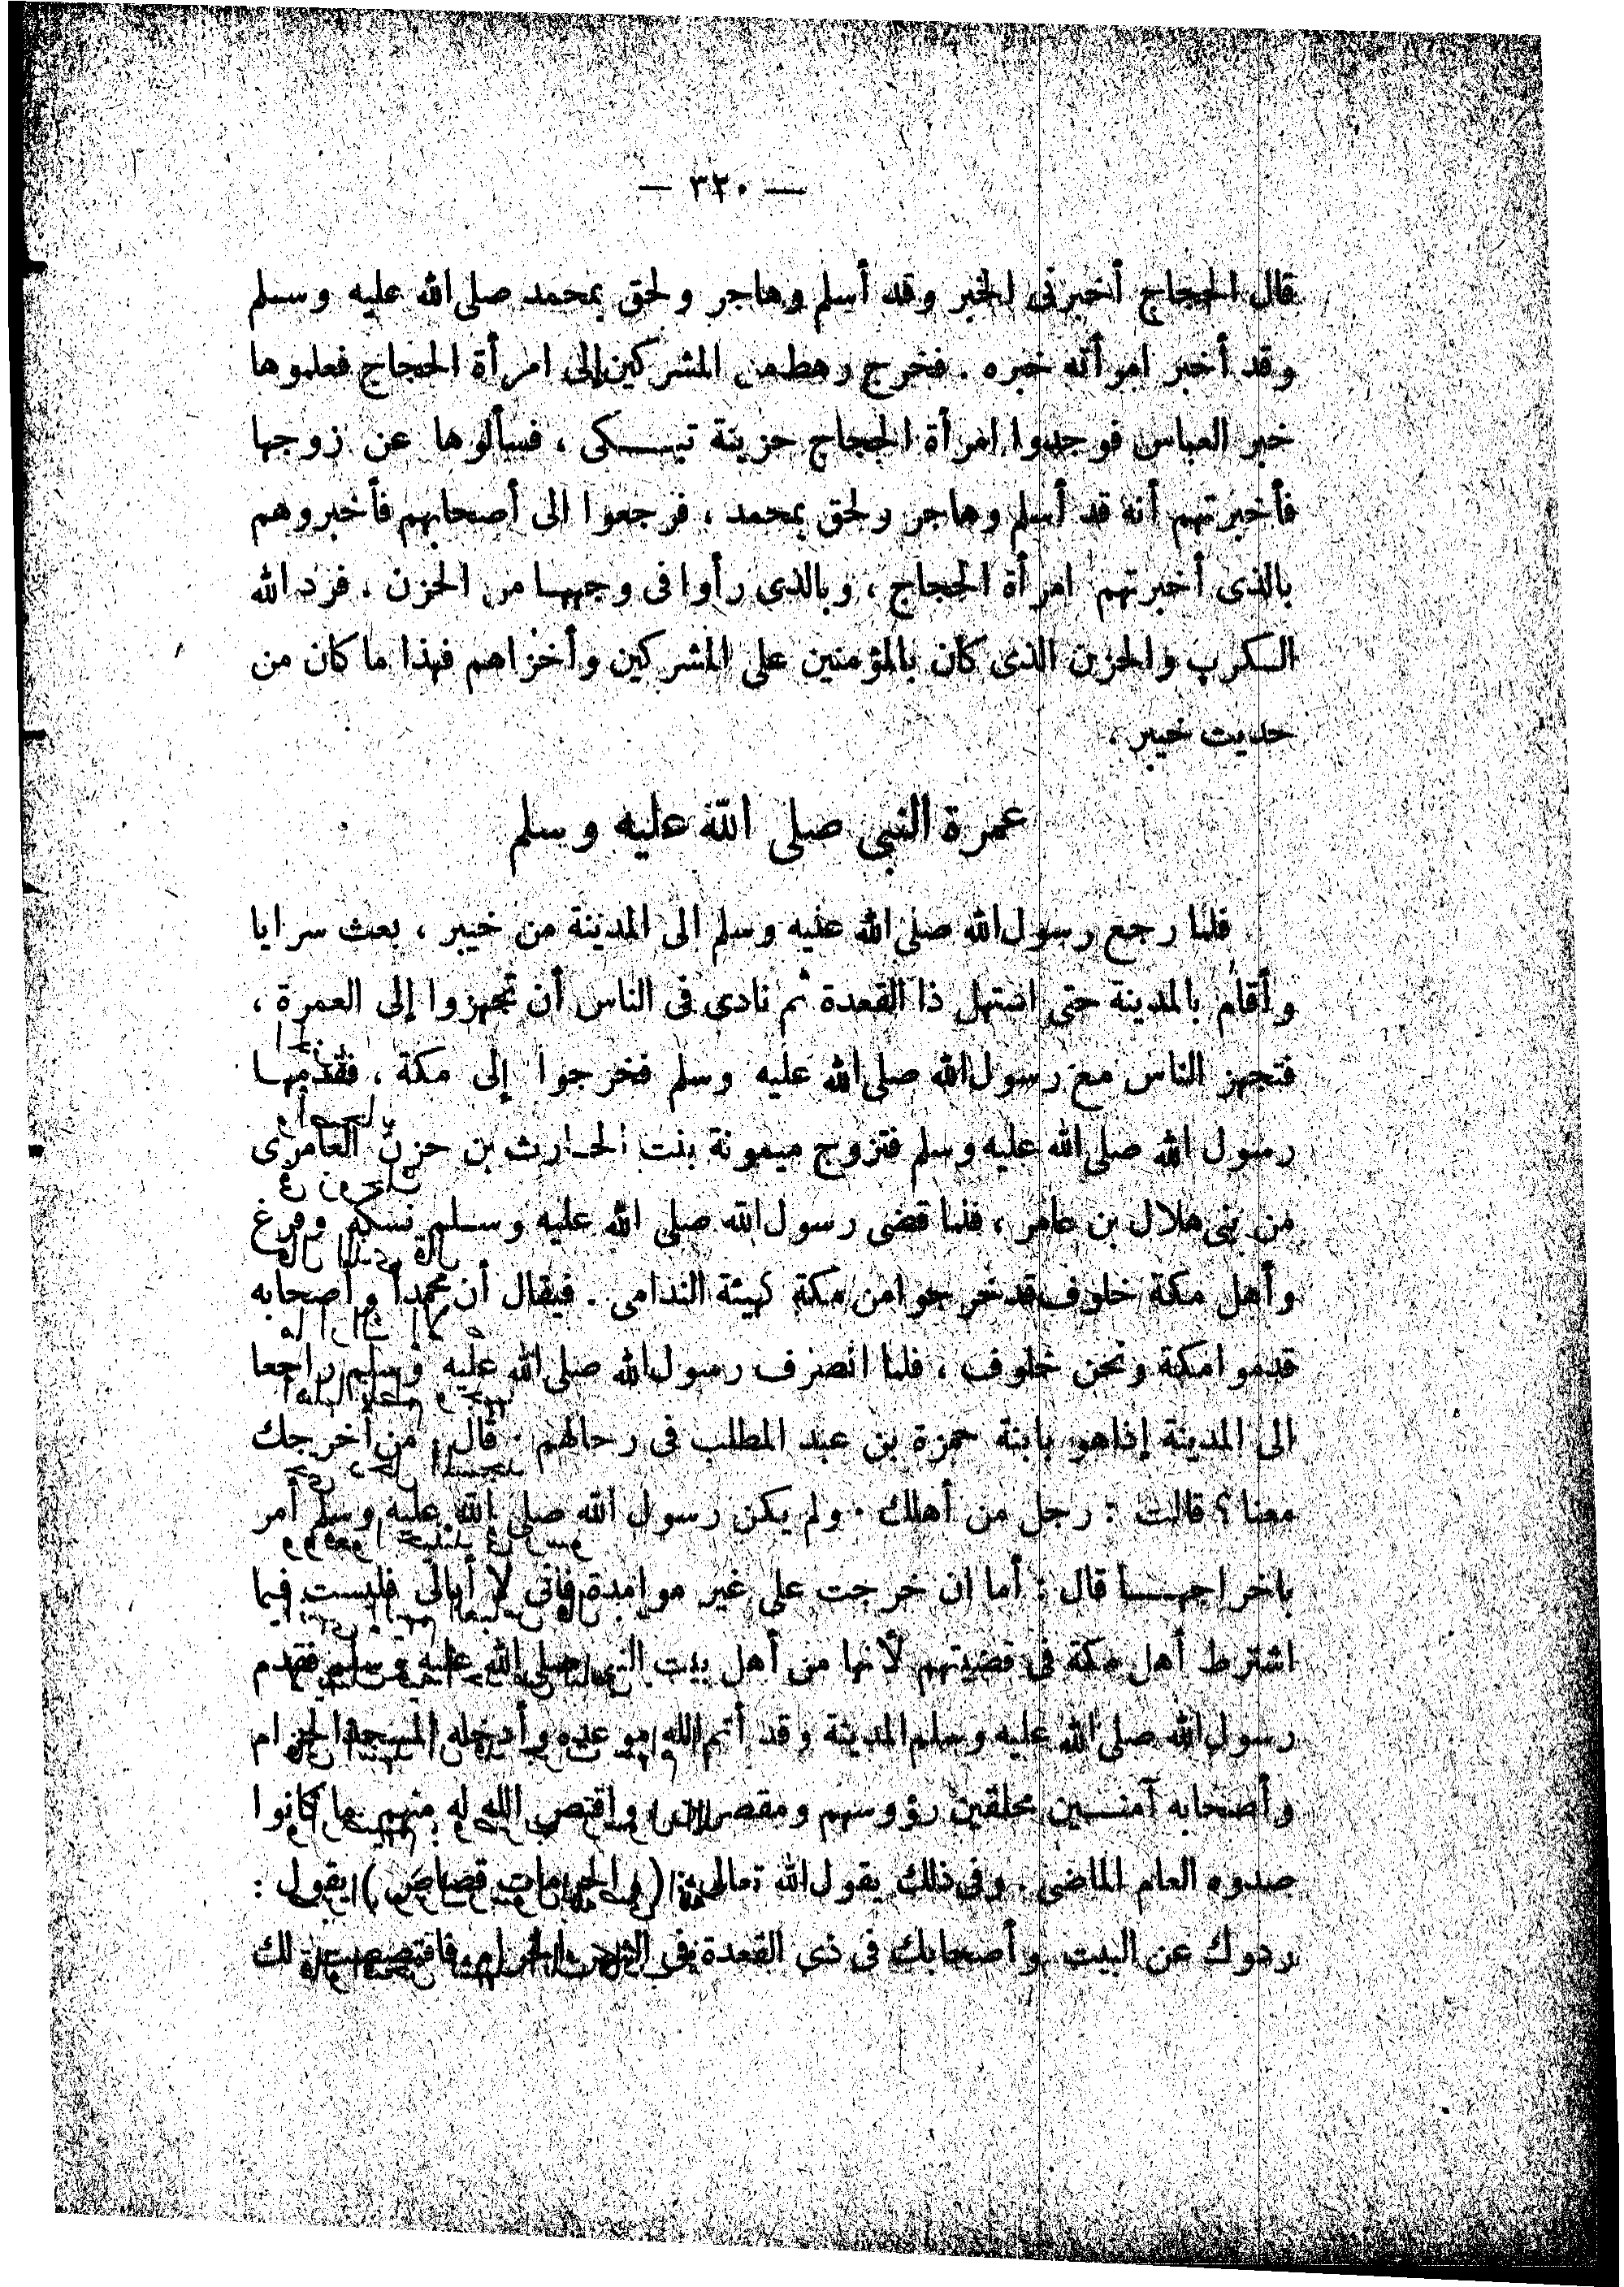 — ٣٢٠ —
قال الحجاج أخبرنى الخبر وقد أسلم وهاجر ولحق بمحمد صلى الله عليه وسلم
وقد أخبر امرأته خبره . فخرج رهط من المشركين إلى امرأة الحجاج فعلموها
خبر العباس فوجدوا امرأة الحجاج حزينة تبكى ، فسألوها عن زوجها
فأخبرتهم أنه قد أسلم وهاجر ولحق بمحمد ، فرجعوا الى أصحابهم فأخبروهم
بالذى أخبرتهم امرأة الحجاج ، وبالذى رأوا فى وجهها من الحزن . فرد الله
الكرب والحزن الذى كان بالمؤمنين على المشركين وأخزاهم فهذا ما كان من
حديث خيبر .
عمرة النبى صلى الله عليه وسلم
فلما رجع رسول الله صلى الله عليه وسلم الى المدينة من خيبر ، بعث سرايا
وأقام بالمدينة حتى استهل ذا القعدة ثم نادى فى الناس أن تجهزوا إلى العمرة ،
فتجهز الناس مع رسول الله صلى الله عليه وسلم فخرجوا إلى مكة ، فقدمها
رسول الله صلى الله عليه وسلم فتزوج ميمونة بنت الحارث بن حزن العامرى
من بنى هلال بن عامر ، فلما قضى رسول الله صلى الله عليه وسلم نسكه وفرغ
وأهل مكة خلوف قد خرجوا من مكة كهيئة الندامى . فيقال أن محمداً وأصحابه
قدموا مكة ونحن خلوف ، فلما انصرف رسول الله صلى الله عليه وسلم راجعا
الى المدينة إذا هو بابنة حمزة بن عبد المطلب فى رحالهم . قال من أخرجك
معنا ؟ قالت : رجل من أهلك . ولم يكن رسول الله صلى الله عليه وسلم أمر
باخراجها قال : أما ان خرجت على غير موامدة فانى لا أبالى فليست فيما
اشترط أهل مكة فى قضيتهم لأنها من أهل بيت النبى صلى الله عليه وسلم فقدم
رسول الله صلى الله عليه وسلم المدينة وقد أتم الله موعده وأدخله المسجد الحرام
وأصحابه آمنين محلقين رؤوسهم ومقصرين واقتص الله له منهم ما كانوا
صدوه العام الماضى . وفى ذلك يقول الله تعالى ( والحرمات قصاص ) يقول :
ردوك عن البيت وأصحابك فى ذى القعدة فى الشهر الحرام فاقتصصت لك